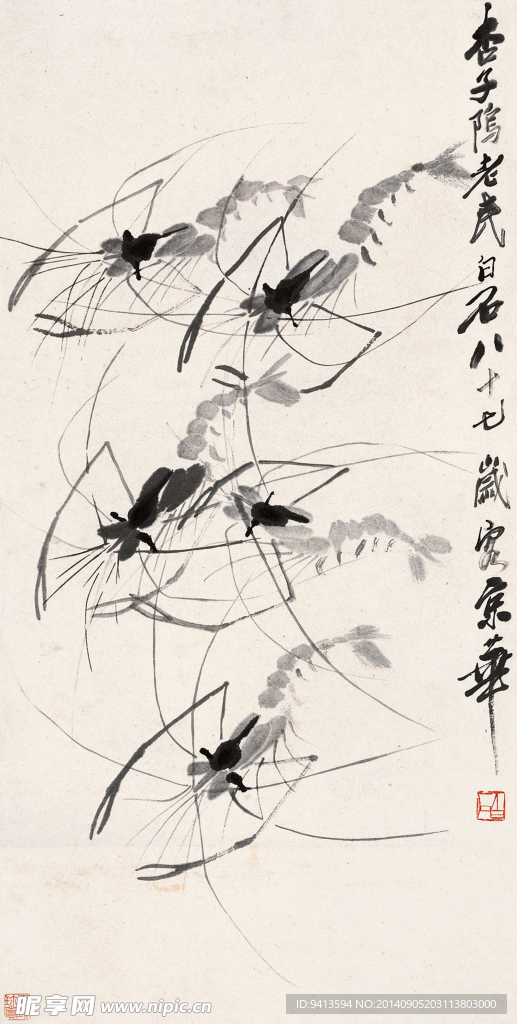 杏子隖老民白石八十七歲客京華
昵享网 www.nipic.cn
ID:9413594 NO:20140905203113803000